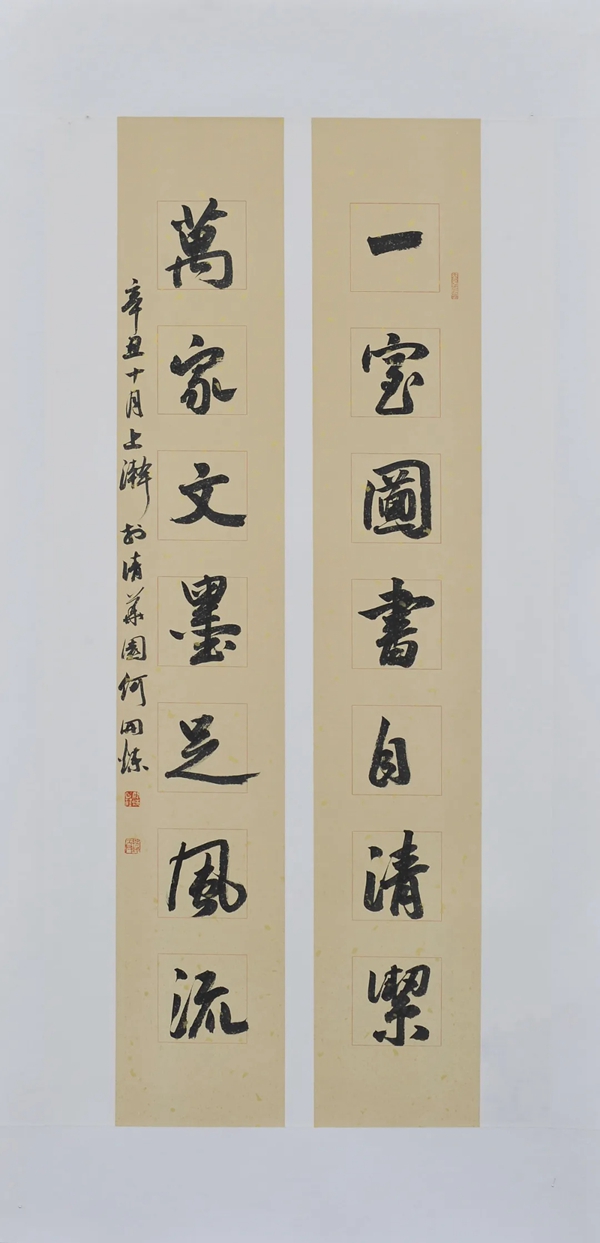 一室圖書自清潔
萬家文墨足風流
辛丑十月上澣於清華園何開煉